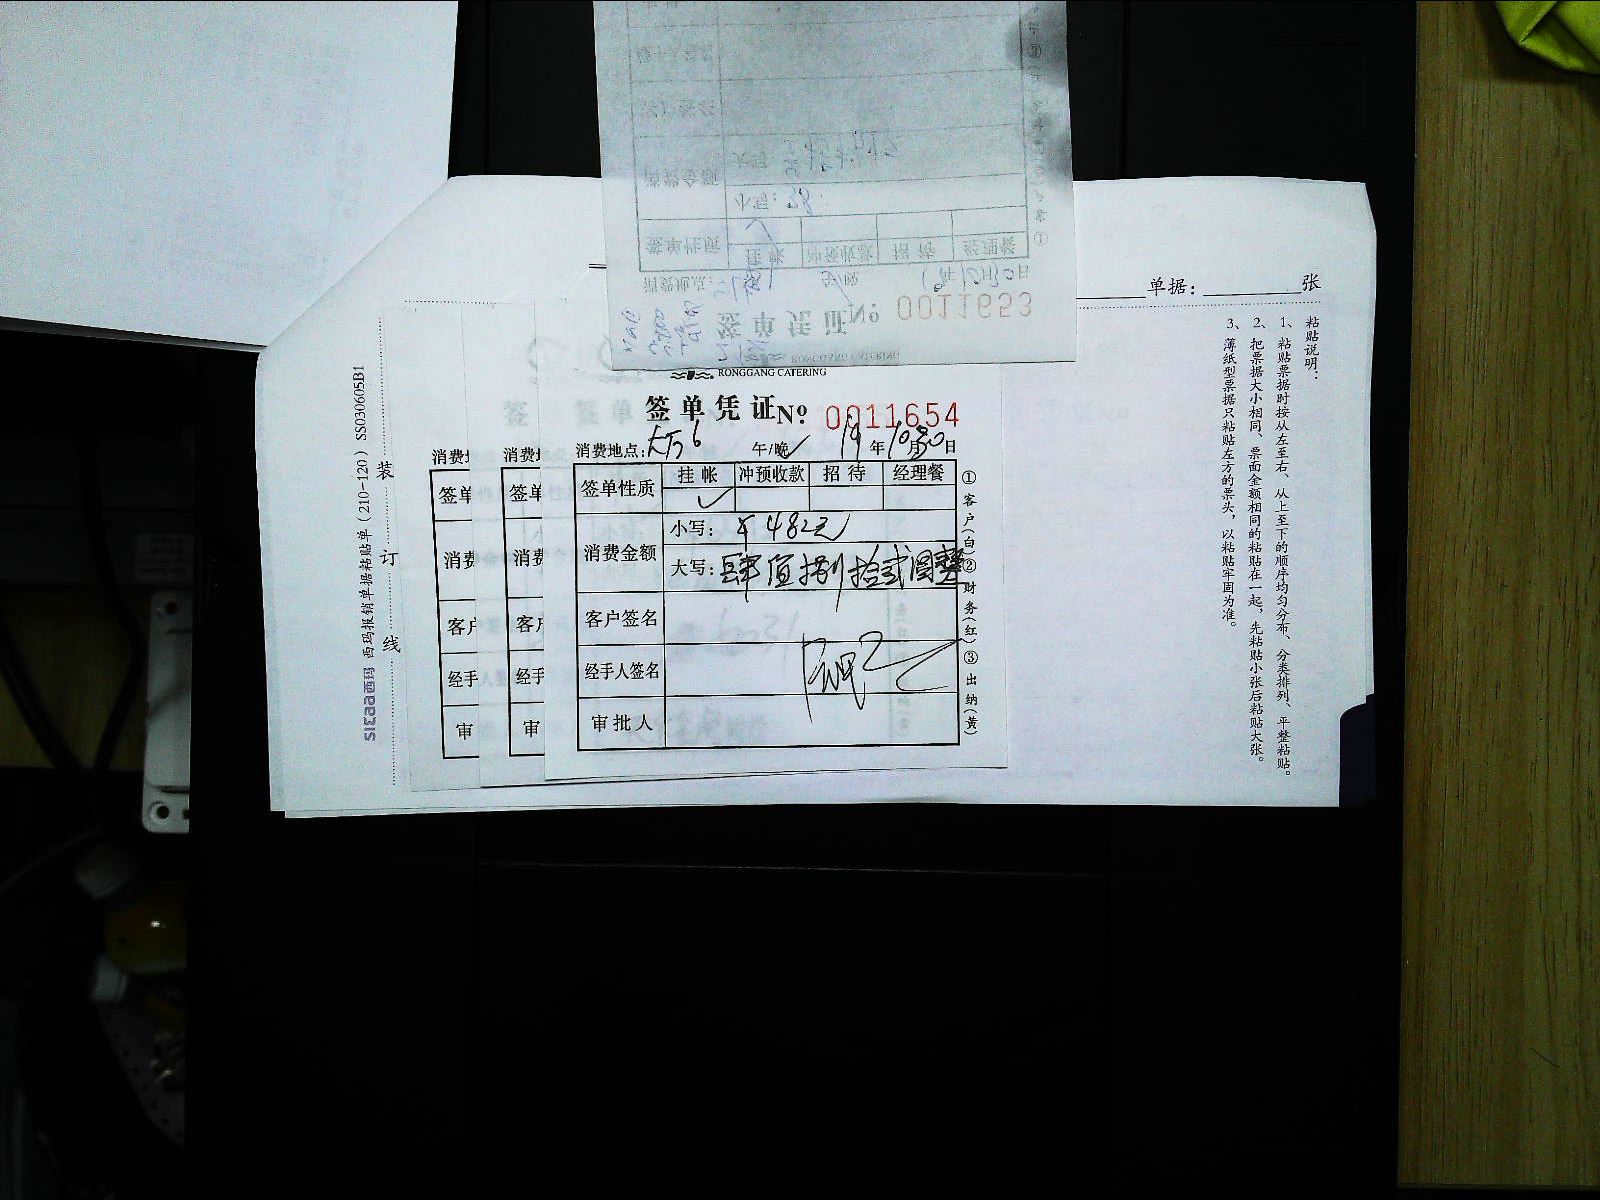 单据： 张
粘贴说明：
1、粘贴票据时按从左至右、从上至下的顺序均匀分布、分类排列、平整粘贴。
2、把票据大小相同、票面金额相同的粘贴在一起，先粘贴小张后粘贴大张。
3、薄纸型票据只粘贴左方的票头，以粘贴牢固为准。
西玛 西玛报销单据粘贴单（210-120） SS030605B1
装
订
线
签单凭证 Nº 0011653
消费地点：
签单性质
挂帐 冲预收款 招待 经理餐
消费金额
小写：
RONGGANG CATERING
RONGGANG CATERING
签单凭证 Nº 0011654
消费地点： 午/晚 19年10月30日
签单性质 挂帐 冲预收款 招待 经理餐
消费金额 小写：¥482元
大写：肆佰捌拾贰圆整
客户签名
经手人签名
审批人
①客户(白)②财务(红)③出纳(黄)
消费
签单
消费
客户
经手
审
消费
签单
消费
客户
经手
审